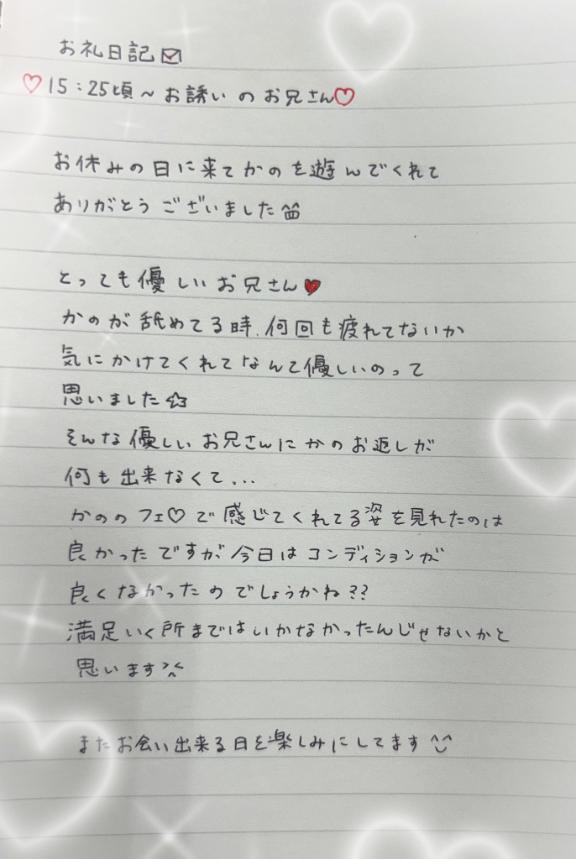 お礼日記☑
♡15:25頃~お誘いのお兄さん♡
お休みの日に来てかのを遊んでくれて
ありがとうございました
とっても優しいお兄さん♥
かのが舐めてる時、何回も疲れてないか
気にかけてくれてなんて優しいのって
思いました☆
そんな優しいお兄さんにかのお返しが
何も出来なくて...
かののフェ♡で感じてくれてる姿を見れたのは
良かったですが今日はコンディションが
良くなかったのでしょうかね??
満足いく所まではいかなかったんじゃないかと
思います
またお会い出来る日を楽しみにしてます